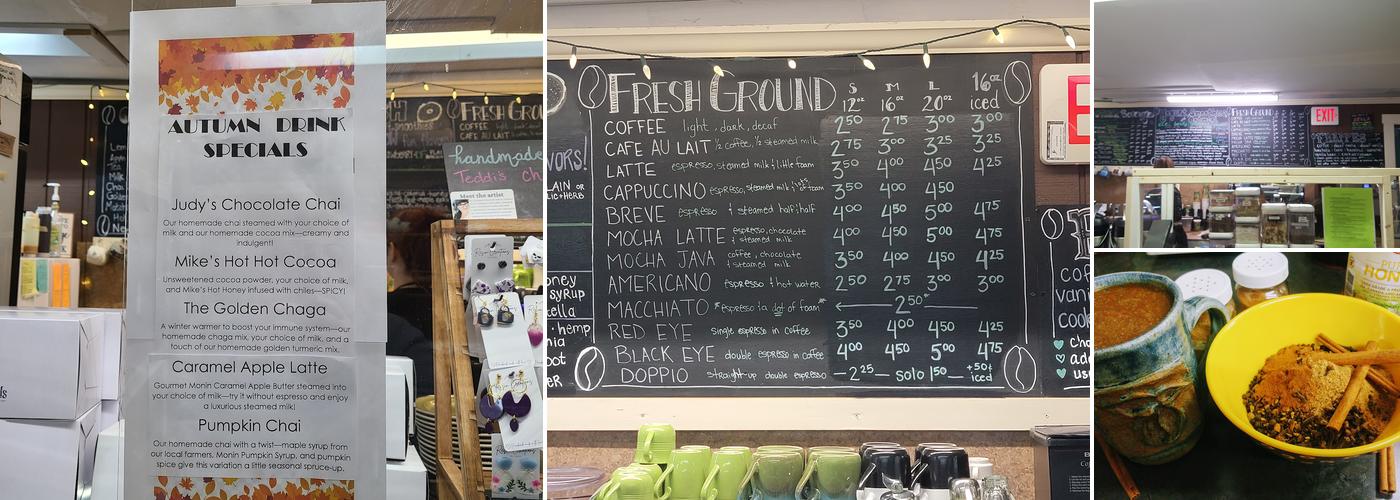 AUTUMN DRINK
SPECIALS
Judy's Chocolate Chai
Our homemade chai steamed with your choice of
milk and our homemade cocoa mix—creamy and
indulgent!
Mike's Hot Hot Cocoa
Unsweetened cocoa powder, your choice of milk,
and Mike's Hot Honey infused with chiles—SPICY!
The Golden Chaga
A winter warmer to boost your immune system—our
homemade chaga mix, your choice of milk, and a
touch of our homemade golden turmeric mix.
Caramel Apple Latte
Gourmet Monin Caramel Apple Butter steamed into
your choice of milk—try it without espresso and enjoy
a luxurious steamed milk!
Pumpkin Chai
Our homemade chai with a twist—maple syrup from
our local farmers, Monin Pumpkin Syrup, and pumpkin
spice give this variation a little seasonal spruce-up.
FRESH GROU
COFFEE
CAFE AU LAIT
handmade
Teddi's Ch
Meet the artist
VORS!
LAIN OR
IC+HERB
oney
syrup
tella
hemp
FRESH GROUND S 12oz M 16oz L 20oz 16oz iced
COFFEE light, dark, decaf 2.50 2.75 3.00 3.00
CAFE AU LAIT ½ coffee, ½ steamed milk 2.75 3.00 3.25 3.25
LATTE espresso, steamed milk & little foam 3.50 4.00 4.50 4.25
CAPPUCCINO espresso, steamed milk & lots of foam 3.50 4.00 4.50
BREVE espresso & steamed half & half 4.00 4.50 5.00 4.75
MOCHA LATTE espresso, chocolate & steamed milk 4.00 4.50 5.00 4.75
MOCHA JAVA coffee, chocolate & steamed milk 3.50 4.00 4.50 4.25
AMERICANO espresso & hot water 2.50 2.75 3.00 3.00
MACCHIATO *espresso w/ a dot of foam* ← 2.50 →
RED EYE single espresso in coffee 3.50 4.00 4.50 4.25
BLACK EYE double espresso in coffee 4.00 4.50 5.00 4.75
DOPPIO straight-up double espresso —2.25— solo 1.50— +50¢ iced
EXIT